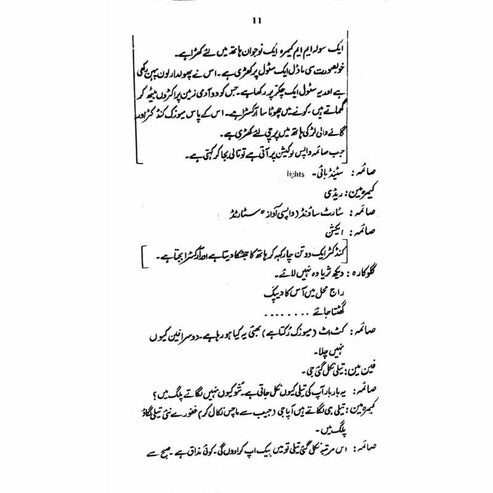 11
ایک سولہ ایم ایم کیمرہ ایک نوجوان ہاتھ میں لئے کھڑا ہے۔
خوبصورت سی ماڈل ایک سٹول پر کھڑی ہے۔ اس نے پھولدار لون پہن رکھی
ہے اور یہ سٹول ایک چکر پر رکھا ہے۔ جس کو دو آدمی زمین پر اکڑوں بیٹھ کر
گھماتے ہیں۔ کونے میں چھوٹا سا آرکسٹرا ہے۔ اس کے پاس میوزک کنڈکٹر اور
گانے والی لڑکی ہاتھ میں پرچی لئے کھڑی ہے۔
جب صائمہ واپس لوکیشن پر آتی ہے تو تالی بجا کر کہتی ہے۔
صائمہ: سٹینڈ بائی۔ lights
کیمرہ مین: ریڈی
صائمہ: سٹارٹ ساؤنڈ (واپسی آواز "سٹارٹڈ
صائمہ: ایکشن
کنڈکٹر ایک دو تین چار کہہ کر ہاتھ کا جھٹکا دیتا ہے اور آرکسٹرا بجتا ہے۔
گلوکارہ: دیکھ ثریا وہ نہیں لائے۔
راج محل میں آس کا دیپک
گھٹتا جائے ........
صائمہ: کٹ اٹ (میوزک رکتا ہے) بھئی یہ کیا ہو رہا ہے۔ دوسرا فین کیوں
نہیں چلا۔
فین مین: تیلی نکل گئی جی۔
صائمہ: یہ بار بار آپ کی تیلی کیوں نکل جاتی ہے۔ شو کیوں نہیں لگاتے پلگ میں؟
کیمرہ مین: تیلی ہی لگاتے ہیں آپا جی (جیب سے ماچس نکال کر) غفورے نئی تیلی لگاؤ
پلگ میں۔
صائمہ: اس مرتبہ نکل گئی تیلی تو میں پیک اپ کرا دوں گی۔ کوئی مذاق ہے۔ صبح سے